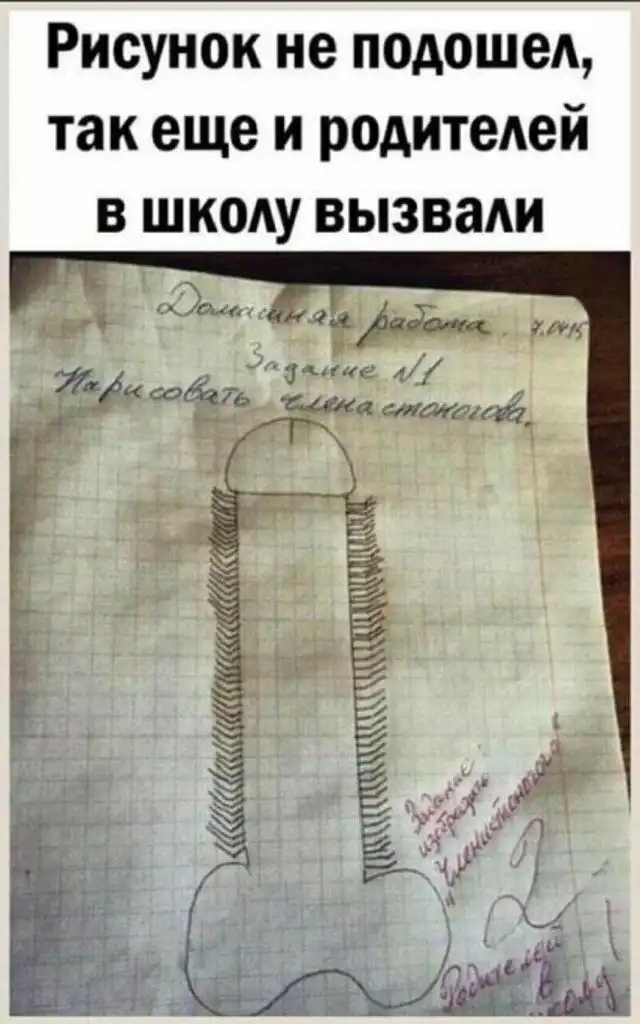 Рисунок не подошел,
так еще и родителей
в школу вызвали
Домашняя работа. 7.0415
Задание №1
Нарисовать члена стоногова.
Задание:
изобразить
"Членистоногого"
2
Родителей
в
школу!